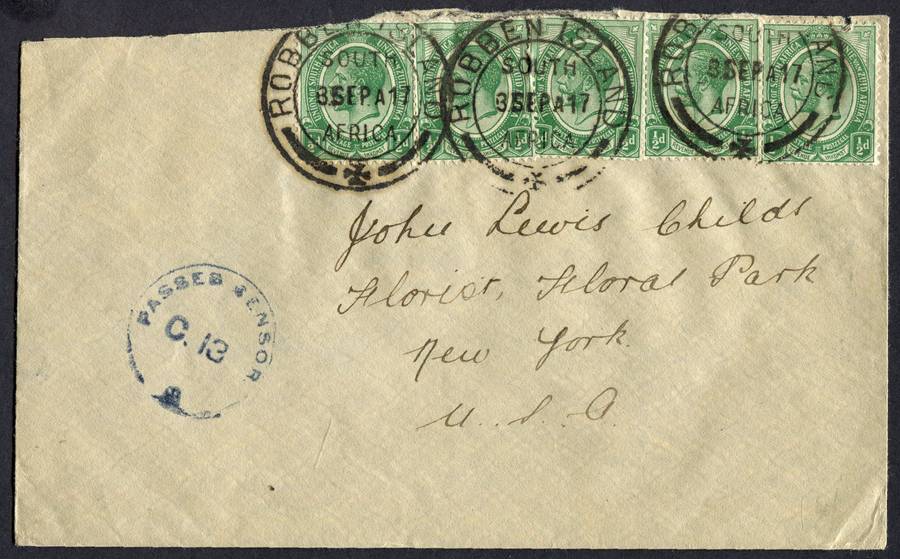 ROBBEN ISLAND
SOUTH
3 SEP A 17
AFRICA
ROBBEN ISLAND
SOUTH
3 SEP A 17
AFRICA
ROBBEN ISLAND
SOUTH
3 SEP A 17
AFRICA
½d
½d
½d
½d
½d
John Lewis Childs
Florist, Floral Park
New York.
U.S.A.
PASSED CENSOR
C. 13